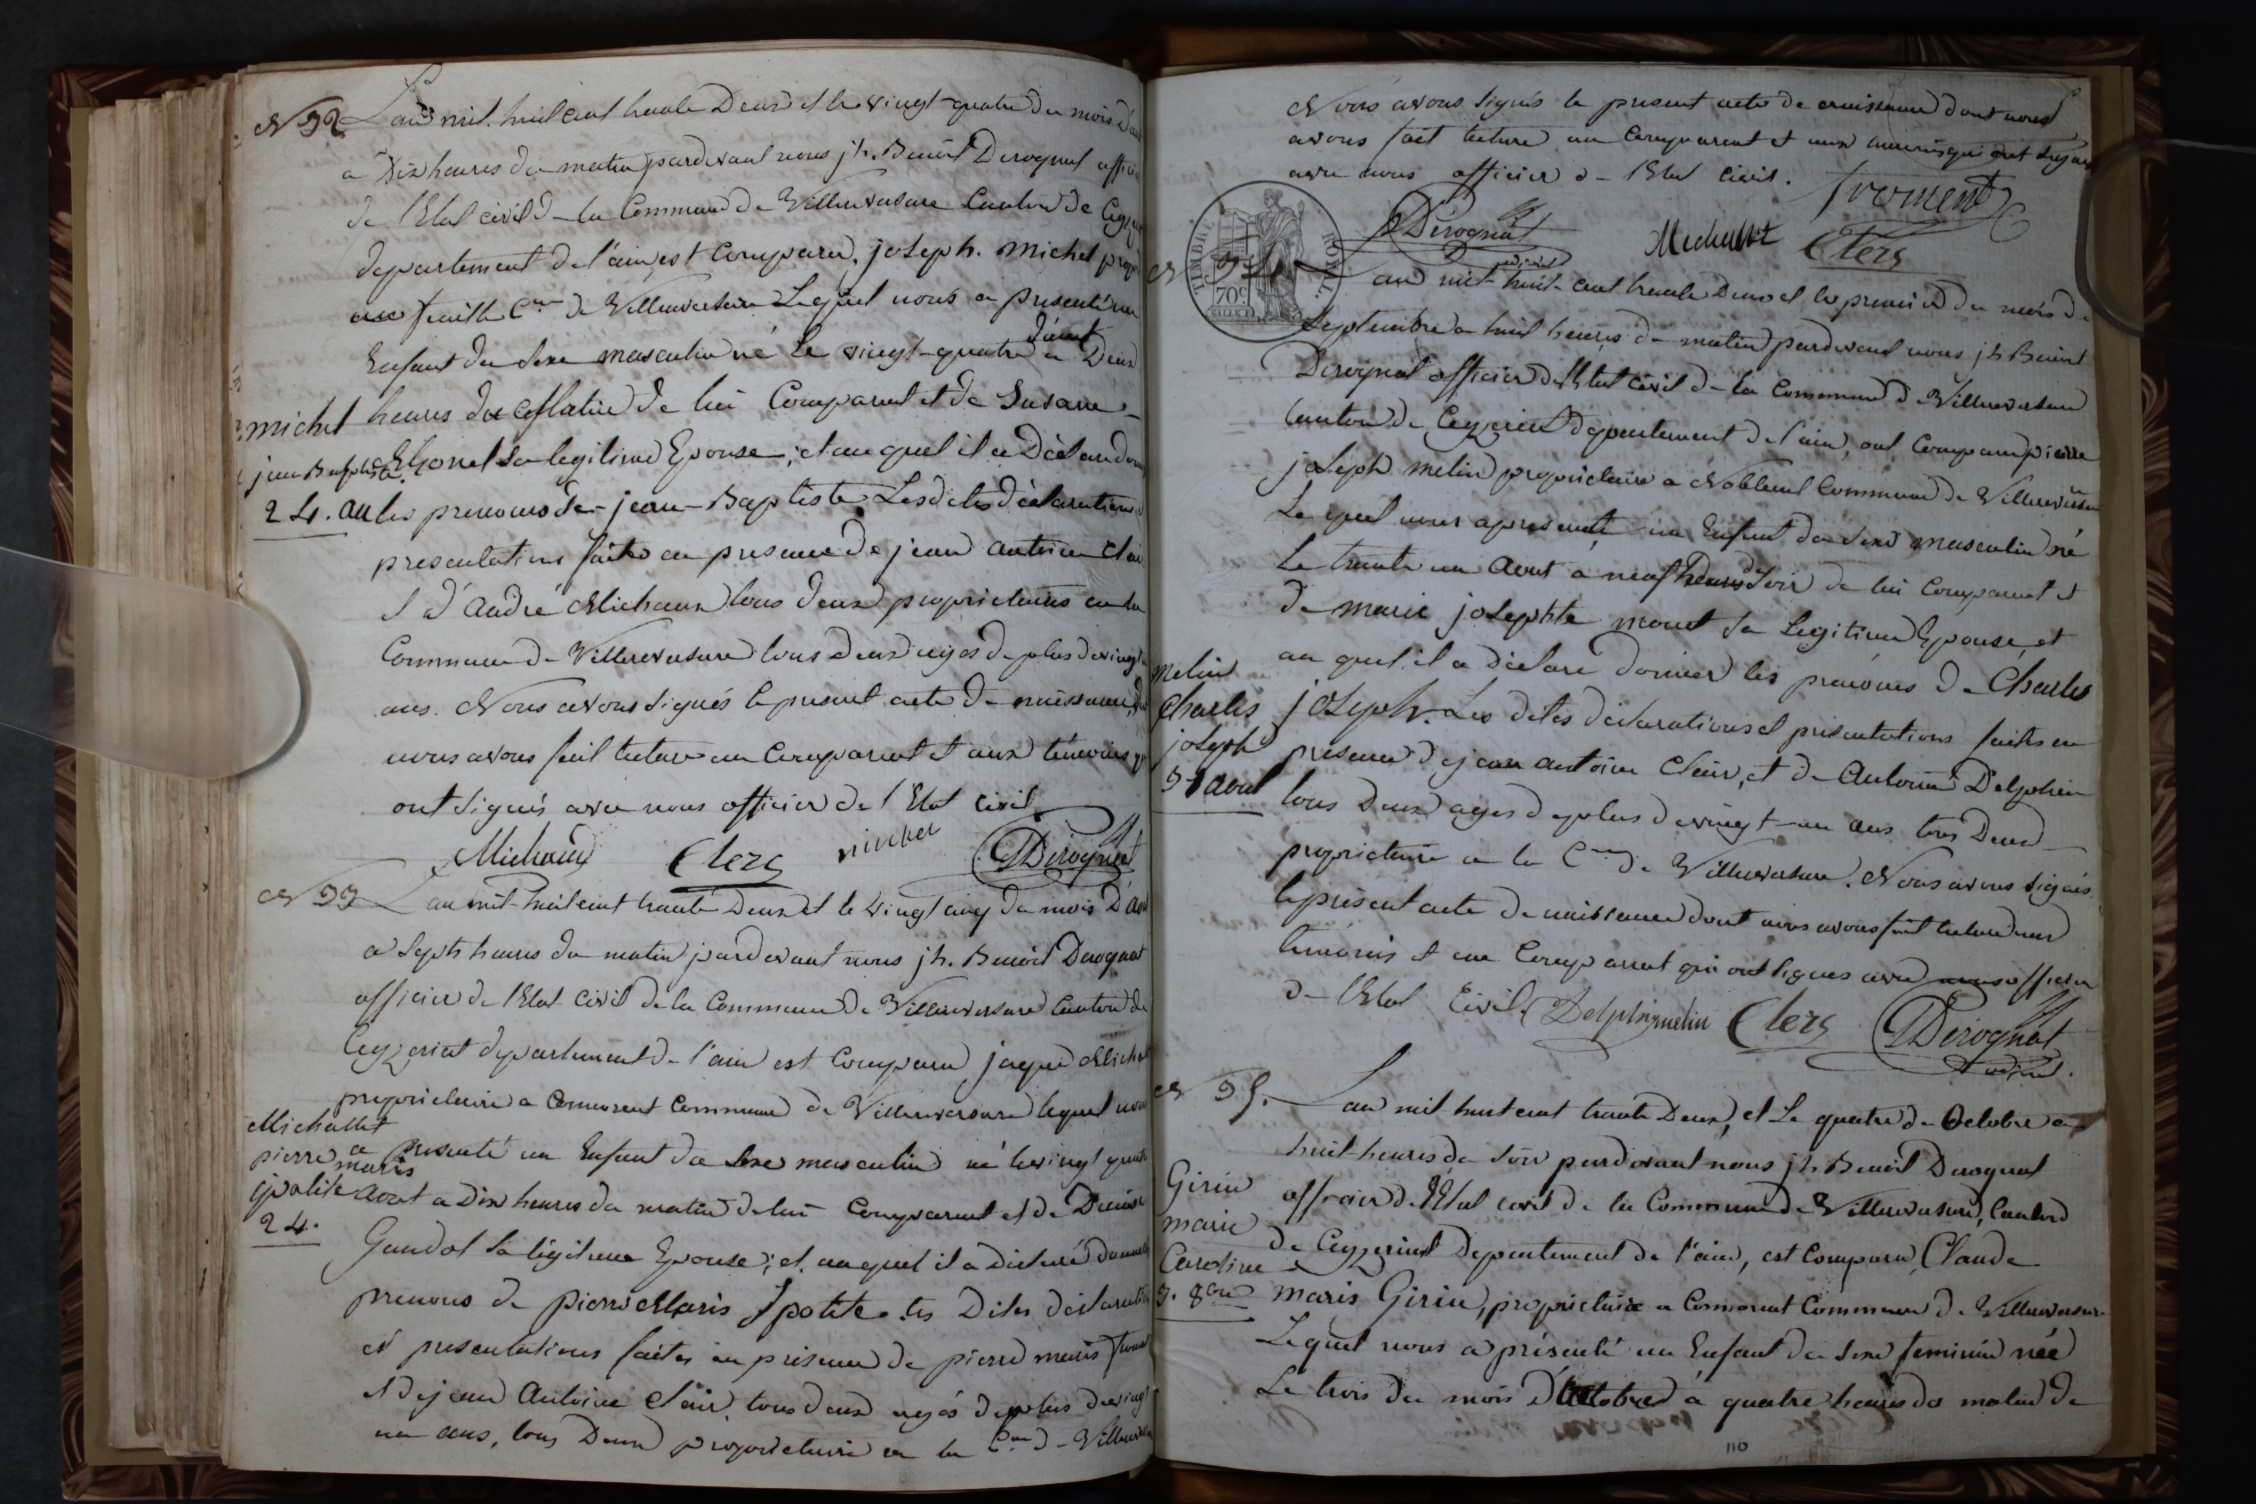 N 32 L'an mil huit cent trente Deux et le vingt quatre du mois d'aout
à Dix heures du matin pardevant nous jh. Benoit Derognat officier
de l'Etat civil de la Commune de Villereversure Canton de
departement de l'ain, est Comparu, joseph michel
Cne de Villereversure Lequel nous a presenté un
Enfant du sexe masculin né le vingt-quatre d'aout a Deux
heures du Matin de lui Comparant et de Susane
sa legitime Epouse, et au quel il a Déclaré
les prenoms de jean-Baptiste Lesdites déclarations
presentations faites en presence de jean antoine Clair
& d'andré Michaux tous deux proprietaires en la
Commune de Villereversure tous deux agés de plus de vingt
ans. Nous avons signés le present acte de naissance
nous avons fait lecture au Comparant et aux témoins
ont signés avec nous officier de l'Etat civil.
michel
jean Baptiste
24. au
Michaud Clerc michel Derognat
N 33 L'an mil huit cent trente Deux et le vingt cinq du mois D'aou
a Septs heures du matin pardevant nous jh. Benoit Derognat
officier de l'Etat civil de la Commune de Villereversure Canton de
Ceyzeriat departement de l'ain est Comparu jaque
proprietaire a Commune de Villereversure lequel nous
a presenté un Enfant du sexe masculin né le vingt quatre
aout a Dix heures du matin de lui Comparant et de Denise
Gaudot sa légitime Epouse; et auquel il a Déclaré
prenoms de pierre Maris Ipolite. les Dites déclarations
et presentations faites en présence de pierre maris
et de jean Antoine Clair, tous deux agés de plus de vingt
un ans, tous Deux proprietaire en la Cne de Villerever
Michallet
pierre
maris
ipolite
24.
Nous avons signés le present acte de naissance dont nous
avons fait lecture au Comparant et aux temoins qui ont signé
avec nous officier de l'Etat civil. froment
Derognat Michallet Clerc
TIMBRE ROYAL
70c
N 34 L'an mil huit cent trente Deux et le premier du mois de
Septembre a huit heures du matin pardevant nous jh Benoit
Derognat officier de l'Etat civil de la Commune de Villereversure
Canton de Ceyzeriat departement de l'ain, ont Comparu pierre
joseph melin proprietaire a Noblens Commune de Villereversure
Le quel nous a presenté un Enfant du sexe masculin né
Le trente un Aout à neuf heures du soir de lui Comparant et
de marie josephte monet sa Legitime Epouse, et
au quel il a déclaré donner les prenoms de Charles
joseph. Les dites déclarations et présentations faites en
presence de jean antoine Clair, et de Antoine Delphin
tous Deux agés de plus de vingt-un ans tous Deux
proprietaire en la Cne de Villereversure. Nous avons signés
le présent acte de naissance dont nous avons fait lecture aux
témoins et au Comparant qui ont signés avec nous officier
de l'Etat Civil.
melin
Charles
joseph
31 aout
Delphin melin Clerc Derognat
N 35. L'an mil huit cent trente Deux, et Le quatre de Octobre a
huit heures du soir pardevant nous jh Benoit Derognat
officier de l'Etat civil de la Commune de Villereversure, Canton
de Ceyzeriat Departement de l'ain, est Comparu, Claude
maris Girin, proprietaire a Commune de Villereversure
Lequel nous a présenté un Enfant du sexe feminin née
Le trois du mois D'Octobre à quatre heures du matin de
Girin
marie
Caroline
3. 8bre
110